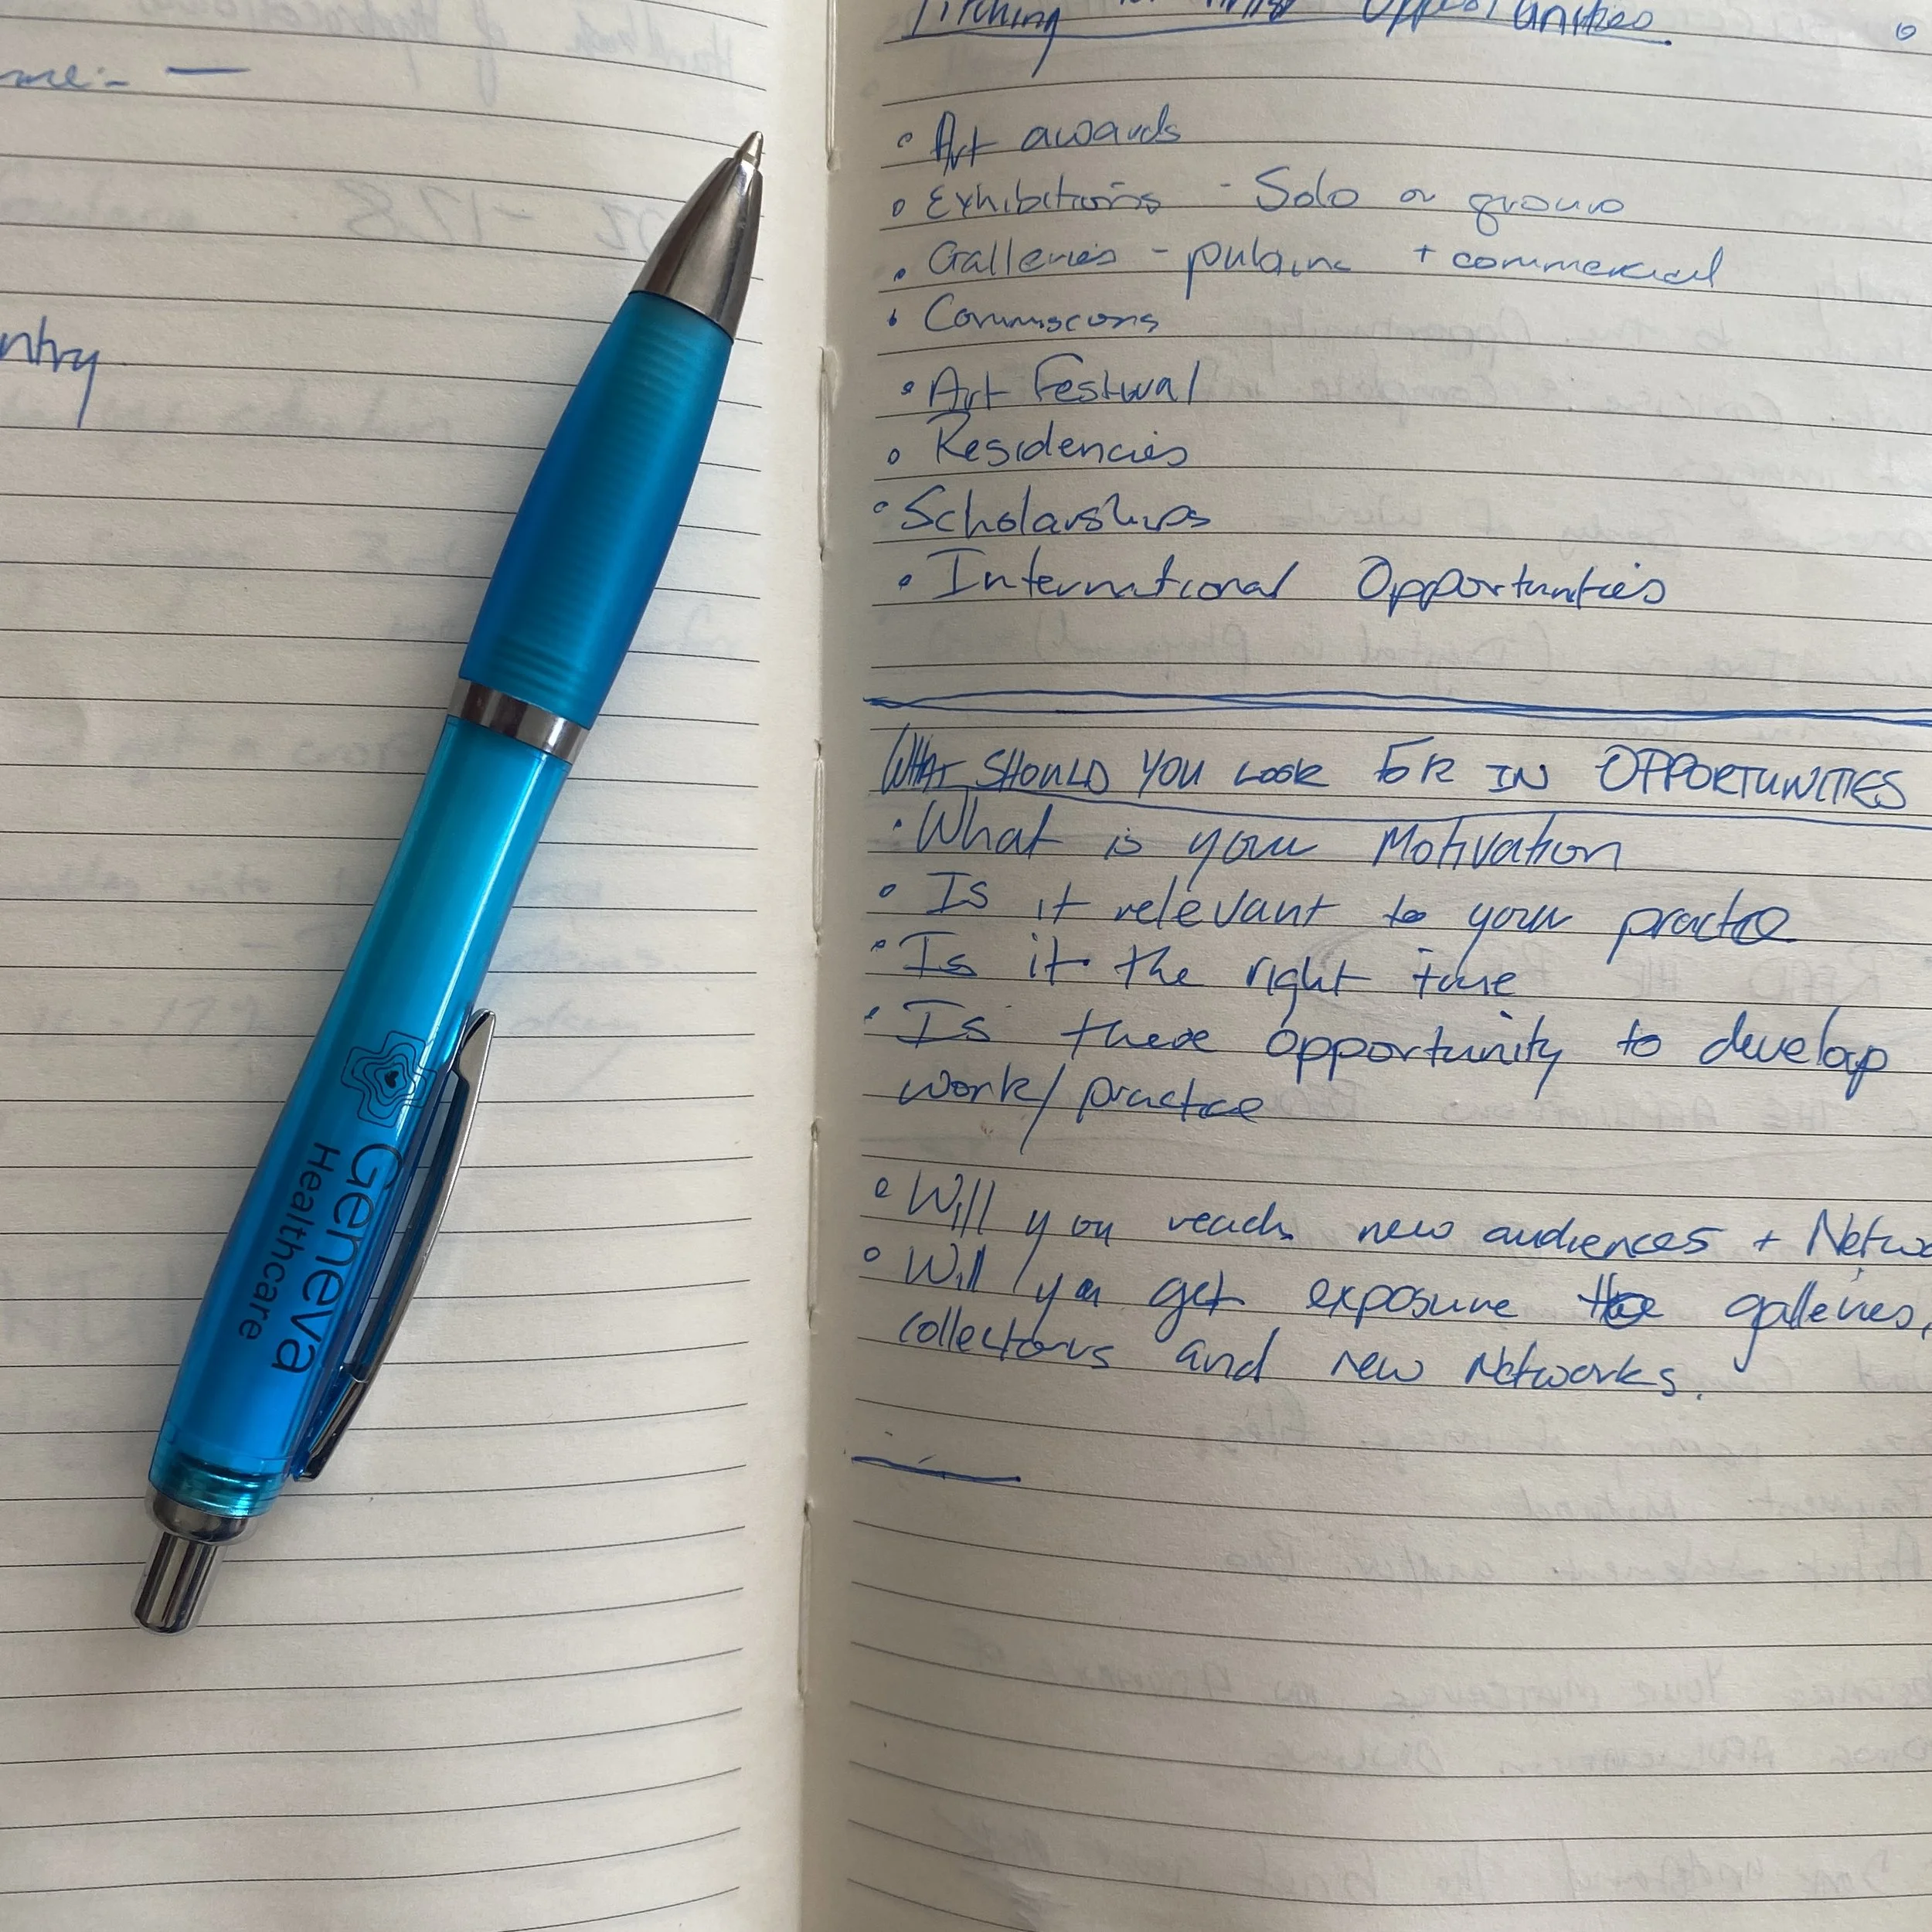 ntry
Geneva
Healthcare
Pitching Opportunities
• Art awards
• Exhibitions - Solo or group
• Galleries - + commercial
• Commissions
• Art Festival
• Residencies
• Scholarships
• International Opportunities
WHAT SHOULD YOU LOOK FOR IN OPPORTUNITIES
• What is your Motivation
• Is it relevant to your practice
• Is it the right time
• Is there opportunity to develop
work/practice
• Will you reach new audiences + Netwo
• Will you get exposure galleries,
collectors and new Networks.